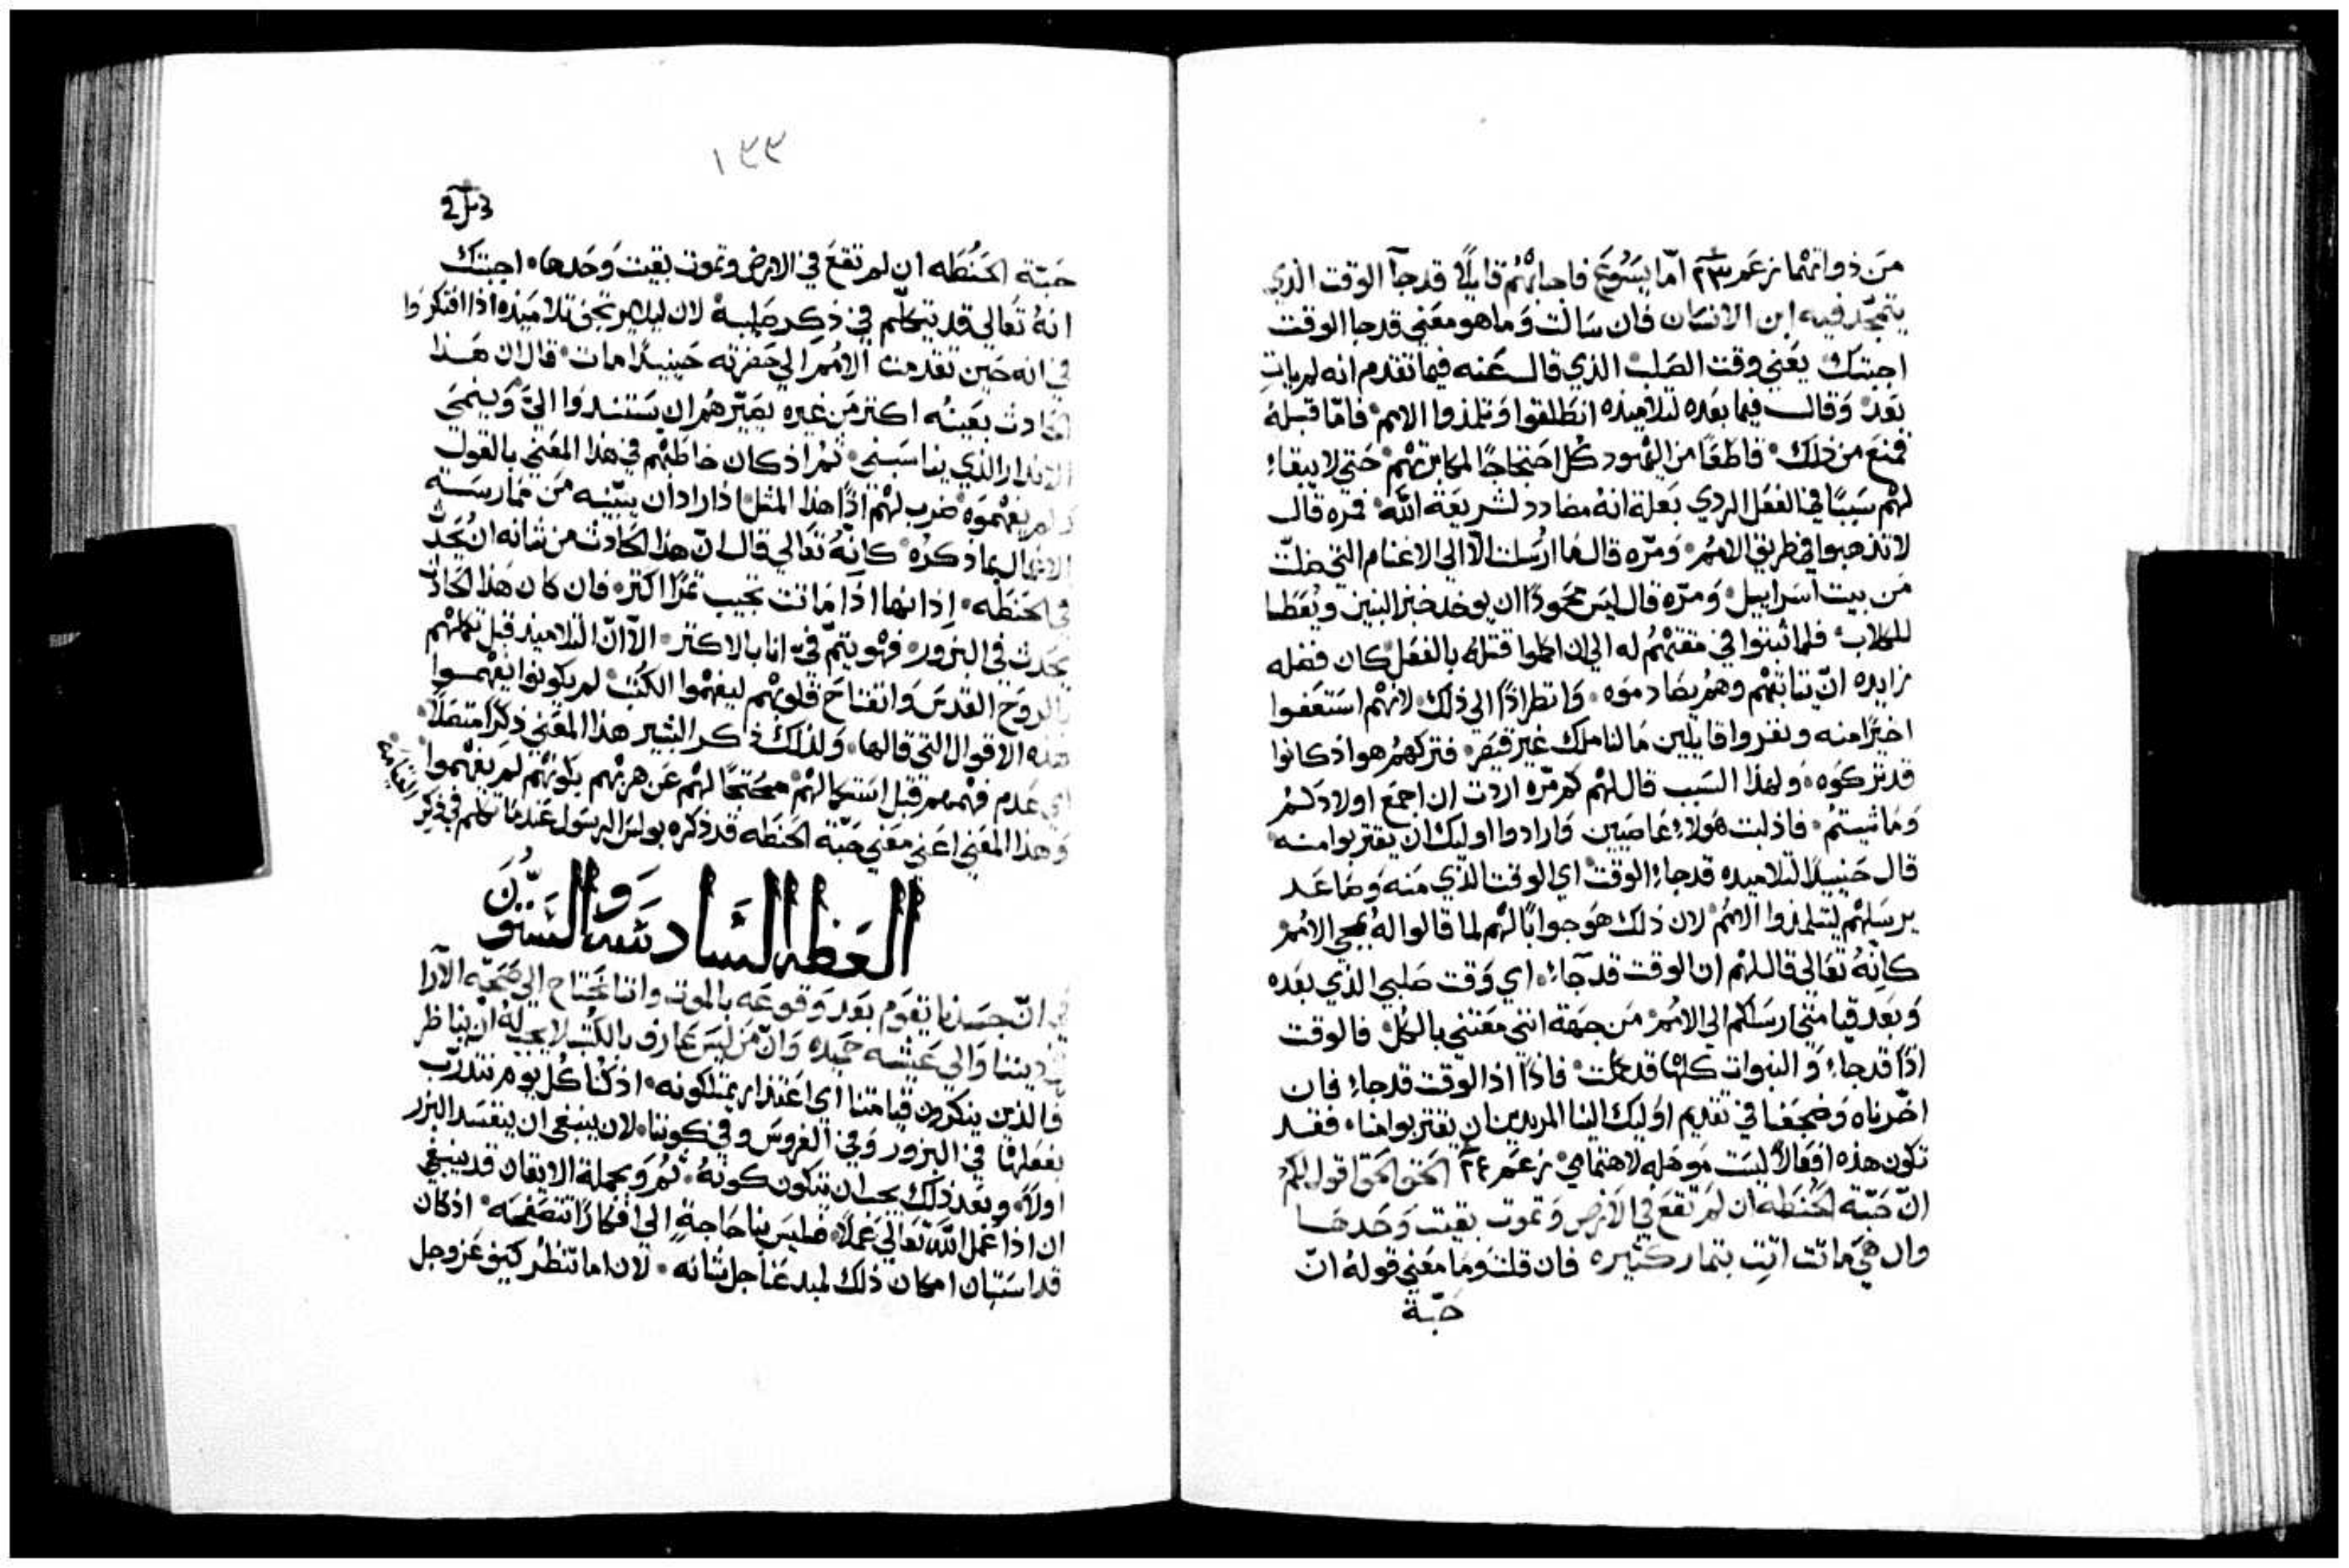 من ذواتهما زعم ٢٣ امّا يسوع فاجابهم قايلًا قدجآ الوقت الذي
يتمجد فيه ابن الانسان فان سالت وما هو معني قدجا الوقت
اجبتك يعني وقت الصلب الذي قال عنه فيما تقدم انه لم يات
بعد وقال فيما بعده لتلاميذه انطلقوا وتلمذوا الامم فامّا قبله
فمنع من ذلك قاطعًا من اليهود كل احتجاجًا لمكابرتهم حتى لا يبقاء
لهم سببًا في الفعل الردي بعلة انه مضادد لشريعة الله فمره قال
لا تذهبوا في طريق الامم ومرّه قال ما ارسلت الّا الى الاغنام التي ضلت
من بيت اسراييل ومرّه قال ليس محمودًا ان يوخد خبز البنين ويعطا
للكلاب فلما ثبتوا في مقتهم له الي ان اكملوا قتله بالفعل كان فضله
زايده ان يتابتهم وهم يصادموه واتطرادًا الي ذلك لانهم استعفوا
اخيرًا منه ونفروا قايلين ما لنا ملك غير قيصر فتركهم هو اذ كانوا
قد تركوه ولهذا السبب قال لهم كم مرّه اردت ان اجمع اولادكم
وما شيتم فاذ لبت هولاء عاصيين وارادوا اوليك ان يقتربوا منه
قال حينيذ لتلاميده قدجاء الوقت اي الوقت الذي منه وصاعد
يرسلهم ليتلمذوا الامم لان ذلك هو جوابًا لهم لما قالوا له بمجي الامم
كانّه تعالي قال لهم ان الوقت قدجآء اي وقت صلبي الذي بعده
وبعد قيامتي ارسلكم الي الامم من جهة انني معتني بالكل فالوقت
اذًا قدجاء والنبوات كلها قدكملت فاذًا اذا الوقت قدجاء فان
اخرناه وضجعنا في تقديم اوليك الينا المريدين ان يقتربوا منا فقد
تكون هذه افعالًا ليست موهله لاهتمامي زعم ٢٤ الحق الحق اقول لكم
انّ حبّة الحنطه ان لم تقع في الارض وتموت بقيت وحدها
وان هي ماتت اتت بتمار كثيره فان قلت وما معني قوله انّ
حبّة
١٣٣
حبّة الحنطه ان لم تقع في الارض وتموت بقيت وحدها اجبتك
انه تعالي قد يتكلم في ذكر صلبه لان ليلا يرتجف تلاميذه اذا افتكروا
في انه حين تقدمت الامم الي حضرته حينيذ مات قال ان هذا
الحادث بعينه اكتر من غيره يصيّرهم ان يستندوا اليّ وينمي
الانذار الذي يناسبني ثم اذ كان خاطبهم في هذا المعني بالقول
ولم يفهموه ضرب لهم اذًا هذا المتل اذ اراد ان يبيّنه من ممارسة
الافعال بما ذكره كانّه تعالي قال انّ هذا الحادث من شانه ان يحدث
في الحنطه اذ انها اذا ماتت تجيب تمرًا اكتر فان كان هذا الحادث
يحدث في البزور فهو يتمّ فيّ انا بالاكتر الّا انّ التلاميذ قبل تكملهم
بالروح القدس وانفتاح قلوبهم ليفهموا الكتب لم يكونوا يفهموا
هذه الاقوال التي قالها ولذلك ذكر البشير هذا المعني ذكرًا متصلًا
اي عدم فهمهم قبل استكمالهم محتجًا لهم عن هربهم بكونهم لم يفهموا
وهذا المعني اعني معني حبّة الحنطه قد ذكره بولس الرسول عندما تكلم في ذكر
القيامه
العظه السادسه والستون
في انّ جسدنا يقوم بعد وقوعه بالموت واننا نحتاج الي صحّة الآرا
في ديننا والي عيشه حميده وانّ من ليس عارف بالكتب لا يجب له ان يناظر
فالذين ينكرون قيامتنا اي اعتذار يمتلكونه اذ كنا كل يوم نتدرّب
بفعلها في البزور وفي الغروس وفي كوننا لان ينبغي ان ينفسد البزر
اولًا وبعد ذلك يجب ان يتكون كونه ثم وبجملة الاتقان قد ينبغي
ان اذا عمل الله تعالي عملًا فليس بنا حاجة الي افكارًا تتصفحه اذ كان
قد استبان امكان ذلك لمبدعنا جل شانه لان اما تنظر كيف عز وجل